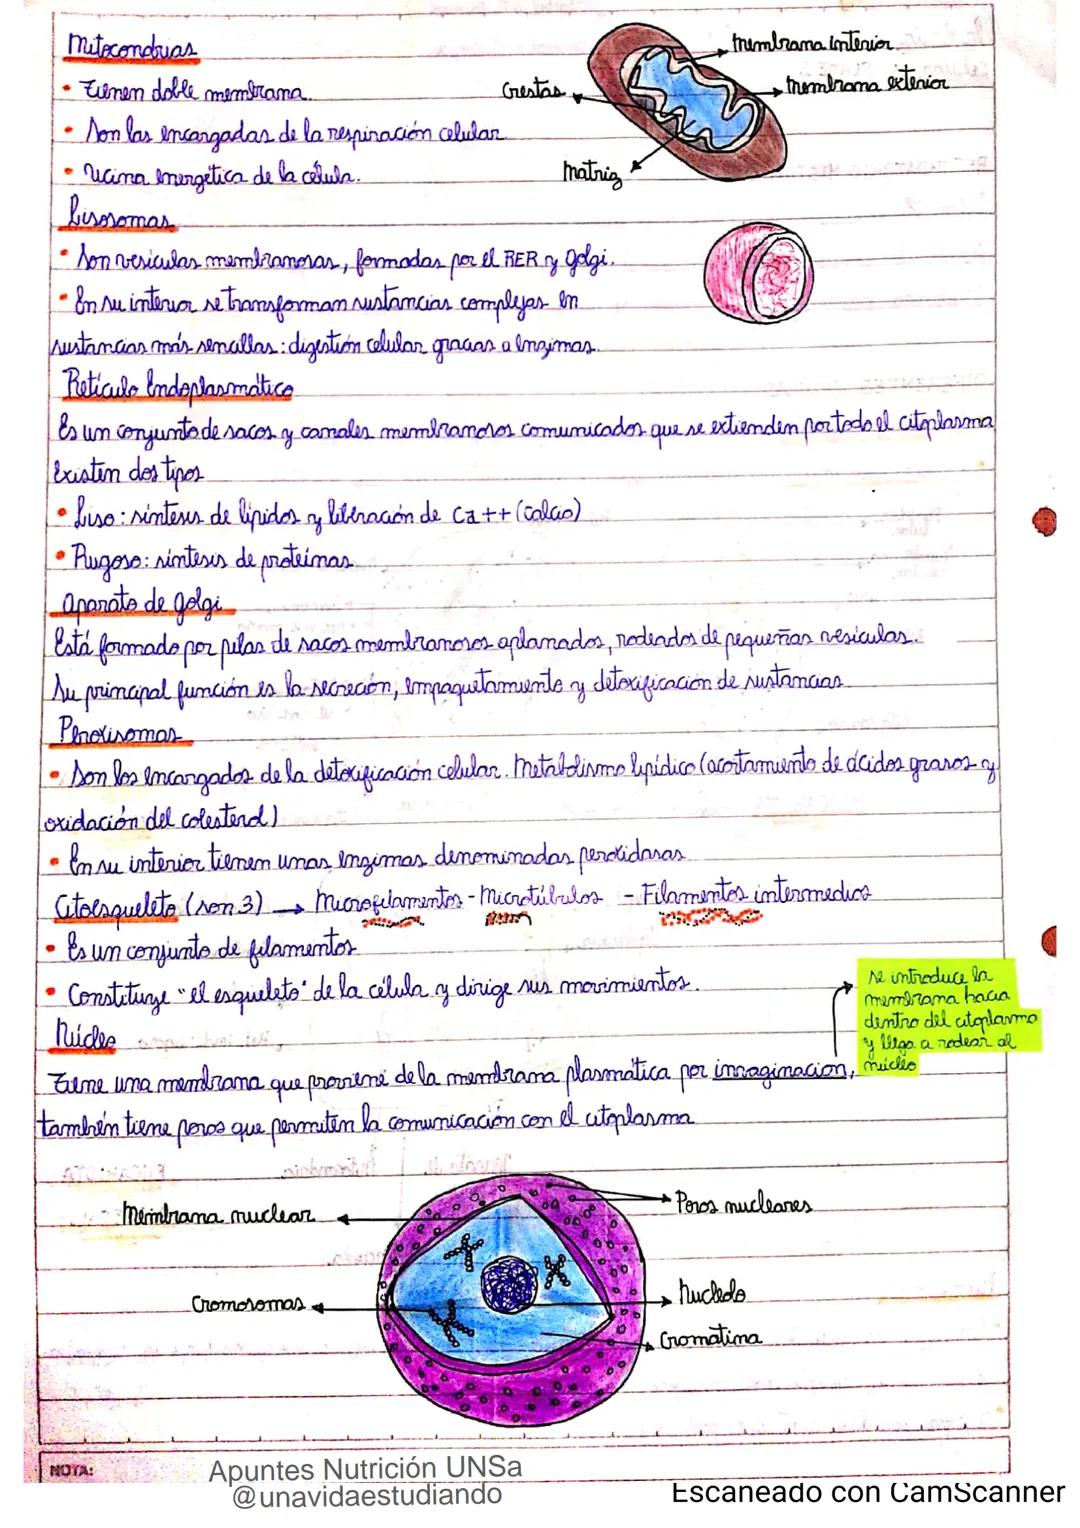 Mitocondrias
• Tienen doble membrana.
• Son las encargadas de la respiración celular
• Usina energética de la célula.
membrana interior
membrana exterior
Crestas
Matriz
Lisosomas
• Son vesículas membranosas, formadas por el RER y Golgi.
• En su interior se transforman sustancias complejas en
sustancias más sencillas: digestión celular gracias a enzimas.
Retículo Endoplasmático
Es un conjunto de sacos y canales membranosos comunicados que se extienden por todo el citoplasma
Existen dos tipos
• Liso: síntesis de lípidos y liberación de Ca++ (calcio)
• Rugoso: síntesis de proteínas
Aparato de Golgi
Está formado por pilas de sacos membranosos aplanados, rodeados de pequeñas vesículas.
Su principal función es la secreción, empaquetamiento y detoxificación de sustancias
Peroxisomas
• Son los encargados de la detoxificación celular. Metabolismo lipídico (acortamiento de ácidos grasos y
oxidación del colesterol)
• En su interior tienen unas enzimas denominadas peroxidasas
Citoesqueleto (son 3) → Microfilamentos - Microtúbulos - Filamentos intermedios
• Es un conjunto de filamentos
• Constituye "el esqueleto" de la célula y dirige sus movimientos.
Núcleo
Tiene una membrana que proviene de la membrana plasmática por invaginación,
también tiene poros que permiten la comunicación con el citoplasma
se introduce la
membrana hacia
dentro del citoplasma
y llega a rodear al
núcleo
Membrana nuclear
Poros nucleares
Cromosomas
Nucleolo
Cromatina
NOTA:
Apuntes Nutrición UNSa
@unavidaestudiando
Escaneado con CamScanner